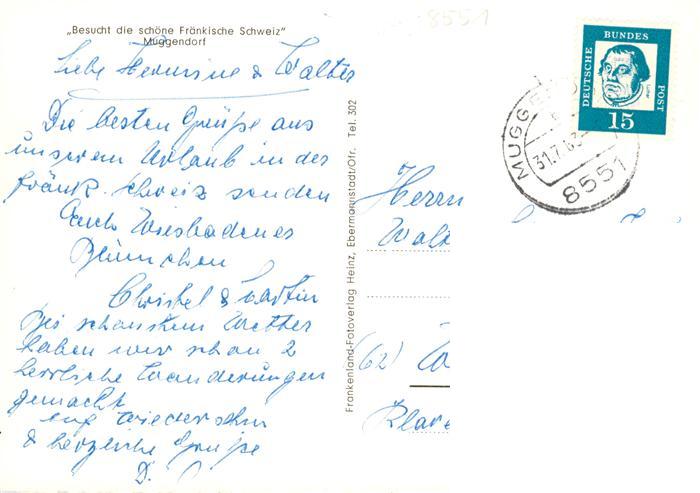 8551
„Besucht die schöne Fränkische Schweiz“
Muggendorf
Liebe Hermine & Walter
Die besten Grüße aus
unserem Urlaub in der
fränk. Schweiz senden
Euch Wiesbadenes
Blümchen
Christel & Martin
Bei schönstem Wetter
haben wir schon 2
herrliche Wanderungen
gemacht
auf Wiedersehn
& herzliche Grüße
D.
Frankenland-Fotoverlag Heinz, Ebermannstadt/Ofr. Tel. 302
DEUTSCHE BUNDESPOST
Luther
15
MUGGE
31.7.63
8551
Herrn
Walt
(62) W
Klare